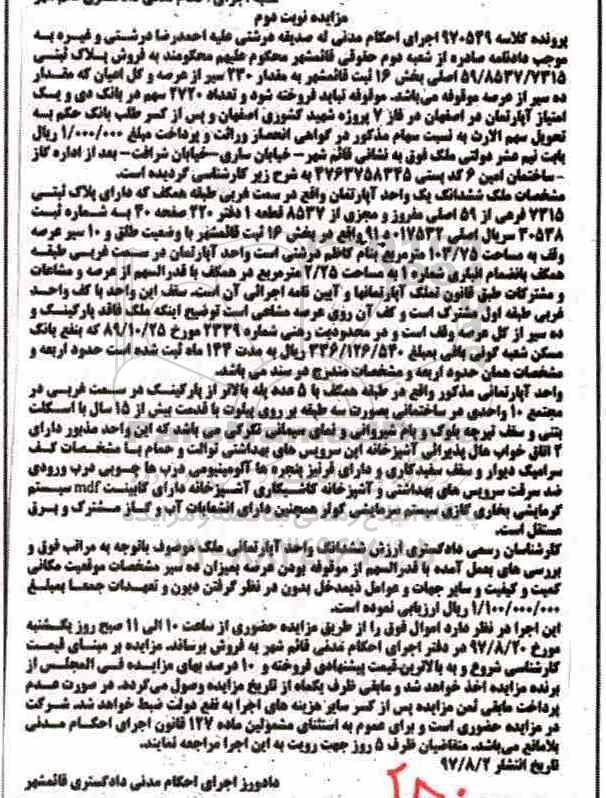 مزایده نوبت دوم
پرونده کلاسه ۹۷۰۵۴۹ اجرای احکام مدنی له صدیقه درشتی علیه احمدرضا درشتی و غیره به
موجب دادنامه صادره از شعبه دوم حقوقی قائمشهر محکوم علیهم محکومند به فروش پلاک ثبتی
۵۹/۸۵۳۷/۷۳۱۵ اصلی بخش ۱۶ ثبت قائمشهر به مقدار ۲۳۰ سیر از عرصه و کل اعیان که مقدار
ده سیر از عرصه موقوفه می‌باشد. موقوفه نباید فروخته شود و تعداد ۲۷۲۰ سهم در بانک دی و یک
امتیاز آپارتمان در اصفهان در فاز ۷ پروژه شهید کشوری اصفهان و پس از کسر طلب بانک حکم به
تحویل سهم الارث به نسبت سهام مذکور در گواهی انحصار وراثت و پرداخت مبلغ ۱/۰۰۰/۰۰۰ ریال
بابت نیم عشر دولتی ملک فوق به نشانی قائم شهر – خیابان ساری –خیابان شرافت– بعد از اداره گاز
– ساختمان امین ۶ کد پستی ۴۷۶۳۷۵۸۳۴۵ به شرح زیر کارشناسی گردیده است.
مشخصات ملک ششدانگ یک واحد آپارتمان واقع در سمت غربی طبقه همکف که دارای پلاک ثبتی
۷۳۱۵ فرعی از ۵۹ اصلی مفروز و مجزی از ۸۵۳۷ قطعه ۱ دفتر ۲۲۰ صفحه ۴۰ به شماره ثبت
۳۰۵۳۸ سریال اصلی ۰۱۷۵۳۲ د ۹۱ واقع در بخش ۱۶ ثبت قائمشهر با وضعیت طلق و ۱۰ سیر عرصه
وقف به مساحت ۱۰۳/۷۵ مترمربع بنام کاظم درشتی است واحد آپارتمان در سمت غربی طبقه
همکف بانضمام انباری شماره ۱ به مساحت ۲/۲۵ مترمربع در همکف با قدرالسهم از عرصه و مشاعات
و مشترکات طبق قانون تملک آپارتمانها و آیین نامه اجرائی آن است. سقف این واحد با کف واحد
غربی طبقه اول مشترک است و کف آن روی عرصه مشاعی است توضیح اینکه ملک فاقد پارکینگ و
ده سیر از کل عرصه وقف است و در محدودیت رهنی شماره ۲۳۳۹ مورخ ۸۹/۱۰/۲۵ که بنفع بانک
مسکن شعبه کوتی باقی بمبلغ ۳۳۶/۱۲۶/۵۴۰ ریال به مدت ۱۴۴ ماه ثبت شده است حدود اربعه و
مشخصات همان حدود اربعه و مشخصات مندرج در سند می باشد.
واحد آپارتمانی مذکور واقع در طبقه همکف با ۵ عدد پله بالاتر از پارکینگ در سمت غربی در
مجتمع ۱۰ واحدی در ساختمانی بصورت سه طبقه بر روی پیلوت با قدمت بیش از ۱۵ سال با اسکلت
بتنی و سقف تیرچه بلوک و بام شیروانی و نمای سیمانی تگرگی می باشد که این واحد مذبور دارای
۲ اتاق خواب هال پذیرائی آشپزخانه اپن سرویس های بهداشتی توالت و حمام با مشخصات کف
سرامیک دیوار و سقف سفیدکاری و دارای قرنیز پنجره ها آلومینیومی درب ها چوبی درب ورودی
ضد سرقت سرویس های بهداشتی و آشپزخانه کاشیکاری آشپزخانه دارای کابینت mdf سیستم
گرمایشی بخاری گازی سیستم سرمایشی کولر همچنین دارای انشعابات آب و گاز مشترک و برق
مستقل است.
کارشناسان رسمی دادگستری ارزش ششدانگ واحد آپارتمانی ملک موصوف باتوجه به مراتب فوق و
بررسی های بعمل آمده با قدرالسهم از موقوفه بودن عرصه بمیزان ده سیر مشخصات موقعیت مکانی
کمیت و کیفیت و سایر جهات و عوامل ذیمدخل بدون در نظر گرفتن دیون و تعهدات جمعا بمبلغ
۱/۱۰۰/۰۰۰/۰۰۰ ریال ارزیابی نموده است.
این اجرا در نظر دارد اموال فوق را از طریق مزایده حضوری از ساعت ۱۰ الی ۱۱ صبح روز یکشنبه
مورخ ۹۷/۸/۲۰ در دفتر اجرای احکام مدنی قائم شهر به فروش برساند. مزایده بر مبنای قیمت
کارشناسی شروع و به بالاترین قیمت پیشنهادی فروخته و ۱۰ درصد بهای مزایده فی المجلس از
برنده مزایده اخذ خواهد شد و مابقی ظرف یکماه از تاریخ مزایده وصول می‌گردد. در صورت عدم
پرداخت مابقی ثمن مزایده پس از کسر سایر هزینه های اجرا به نفع دولت ضبط خواهد شد. شرکت
در مزایده حضوری است و برای عموم به استثنای مشمولین ماده ۱۲۷ قانون اجرای احکام مدنی
بلامانع می‌باشد. متقاضیان ظرف ۵ روز جهت رویت به این اجرا مراجعه نمایند.
تاریخ انتشار ۹۷/۸/۲
دادورز اجرای احکام مدنی دادگستری قائمشهر